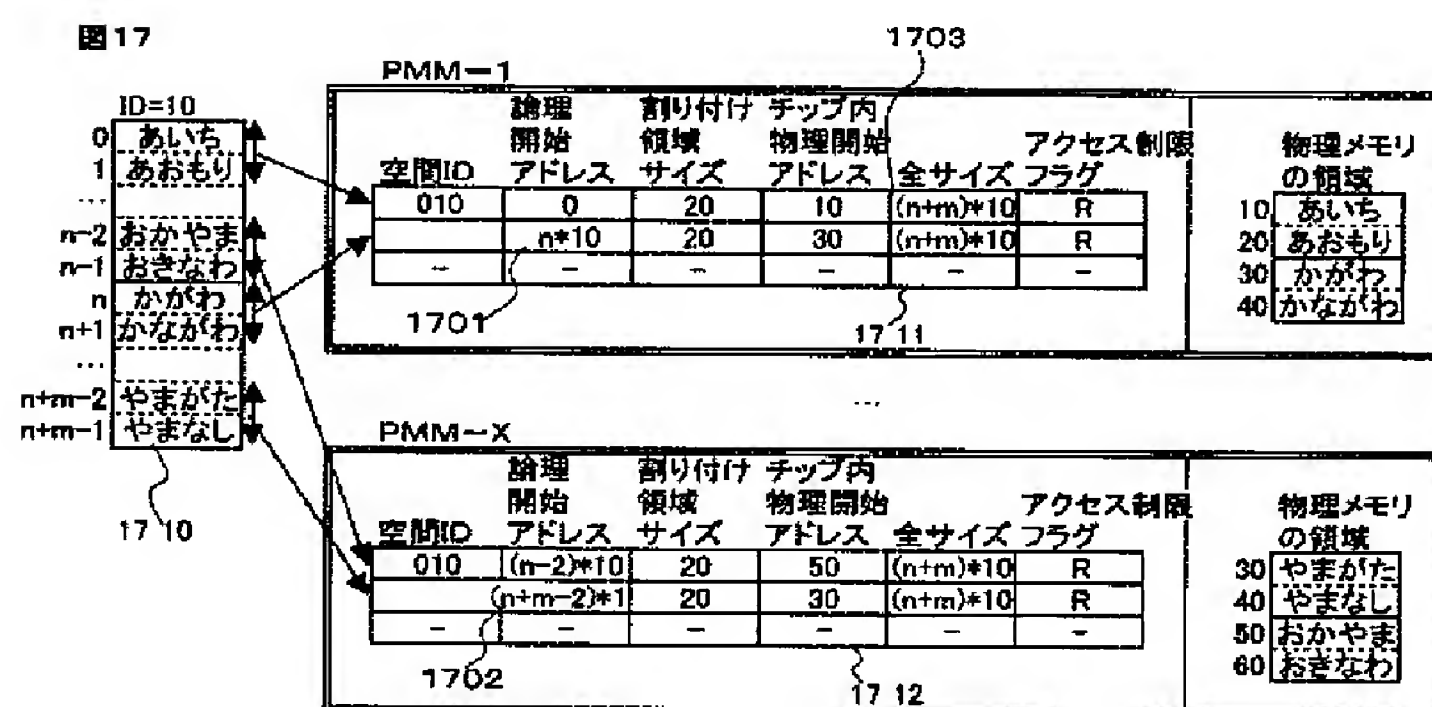 図17
1703
PMM-1
ID=10
0 あいち
1 あおもり
...
n-2 おかやま
n-1 おきなわ
n かがわ
n+1 かながわ
...
n+m-2 やまがた
n+m-1 やまなし
17 10
空間ID 論理開始アドレス 割り付け領域サイズ チップ内物理開始アドレス 全サイズ アクセス制限フラグ
010 0 20 10 (n+m)*10 R
n*10 20 30 (n+m)*10 R
- - - - - -
1701
17 11
物理メモリ
の領域
10 あいち
20 あおもり
30 かがわ
40 かながわ
...
PMM-X
空間ID 論理開始アドレス 割り付け領域サイズ チップ内物理開始アドレス 全サイズ アクセス制限フラグ
010 (n-2)*10 20 50 (n+m)*10 R
(n+m-2)*1 20 30 (n+m)*10 R
- - - - - -
1702
17 12
物理メモリ
の領域
30 やまがた
40 やまなし
50 おかやま
60 おきなわ